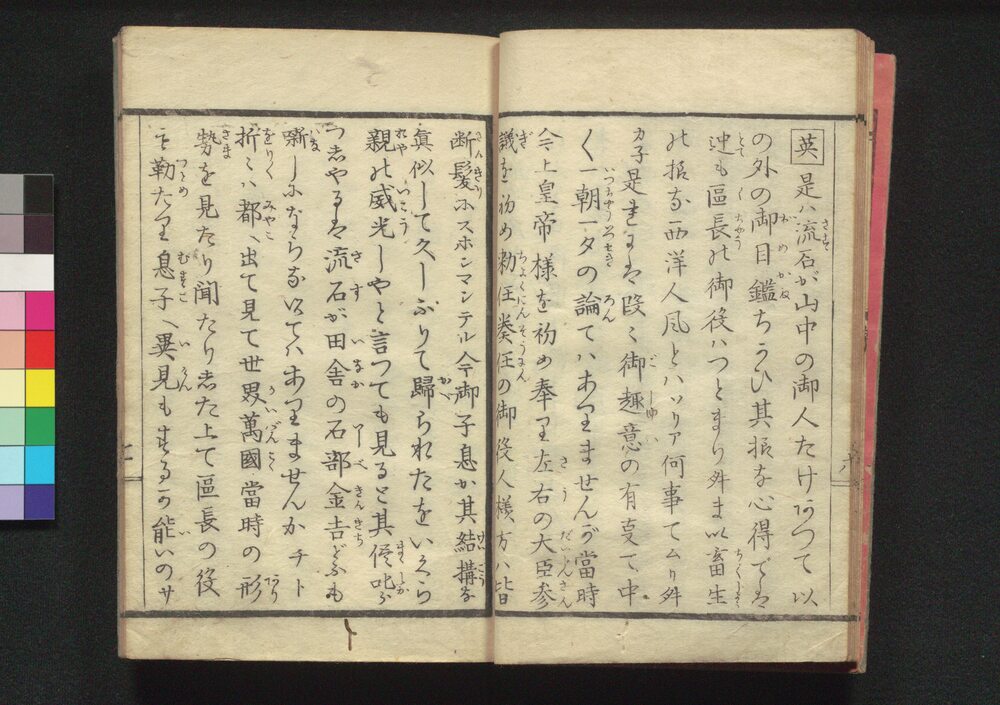 英 是ハ流石が山中の御人たけあつて以
の外の御目鑑ちかひ其振な心得でハ
迚も區長の御役ハつとまり舛まい畜生
の振な西洋人風とハソリャ何事てムり舛
カ子是まてハ段々御趣意の有事で中
く一朝一夕の論てハありませんが當時
今上皇帝様を初め奉り左右の大臣参
議を初め勅任奏任の御役人様方ハ皆
断髪ホスホンマンテル今御子息か其結搆な
眞似して久しぶりて歸られたをいくら
親の威光しやと言つても見ると其侭叱り
つしやるハ流石が田舎の石部金吉どふも
噺しにならないてハありませんか チト
折々ハ都へ出て見て世界萬國當時の形
勢を見たり聞たりした上て區長の役
も勤たり息子へ異見もするか能いのサ